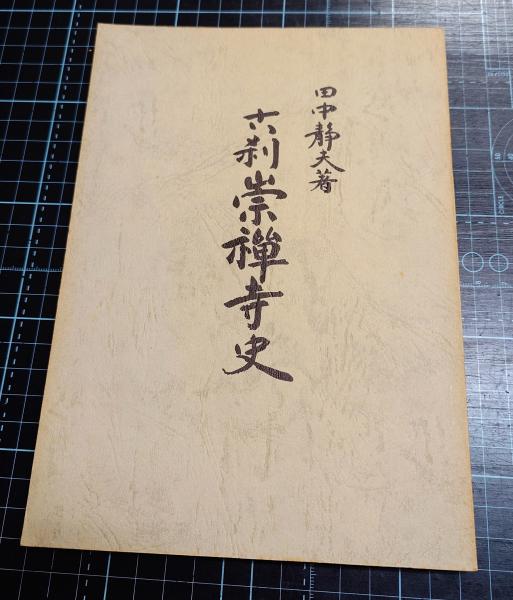 田中静夫著
古刹崇禅寺史